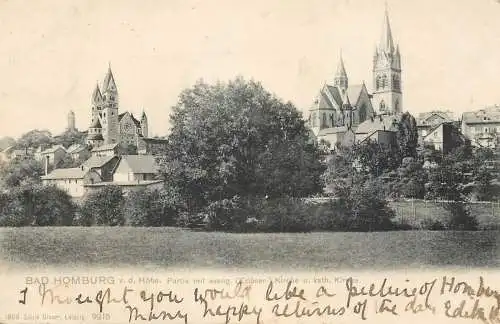 BAD HOMBURG v. d. Höhe. Partie mit evang. (Erlöser-) Kirche u. kath. Kirche
Louis Glaser, Leipzig. 9915
I thought you would like a picture of Homburg
Many happy returns of the day Edith